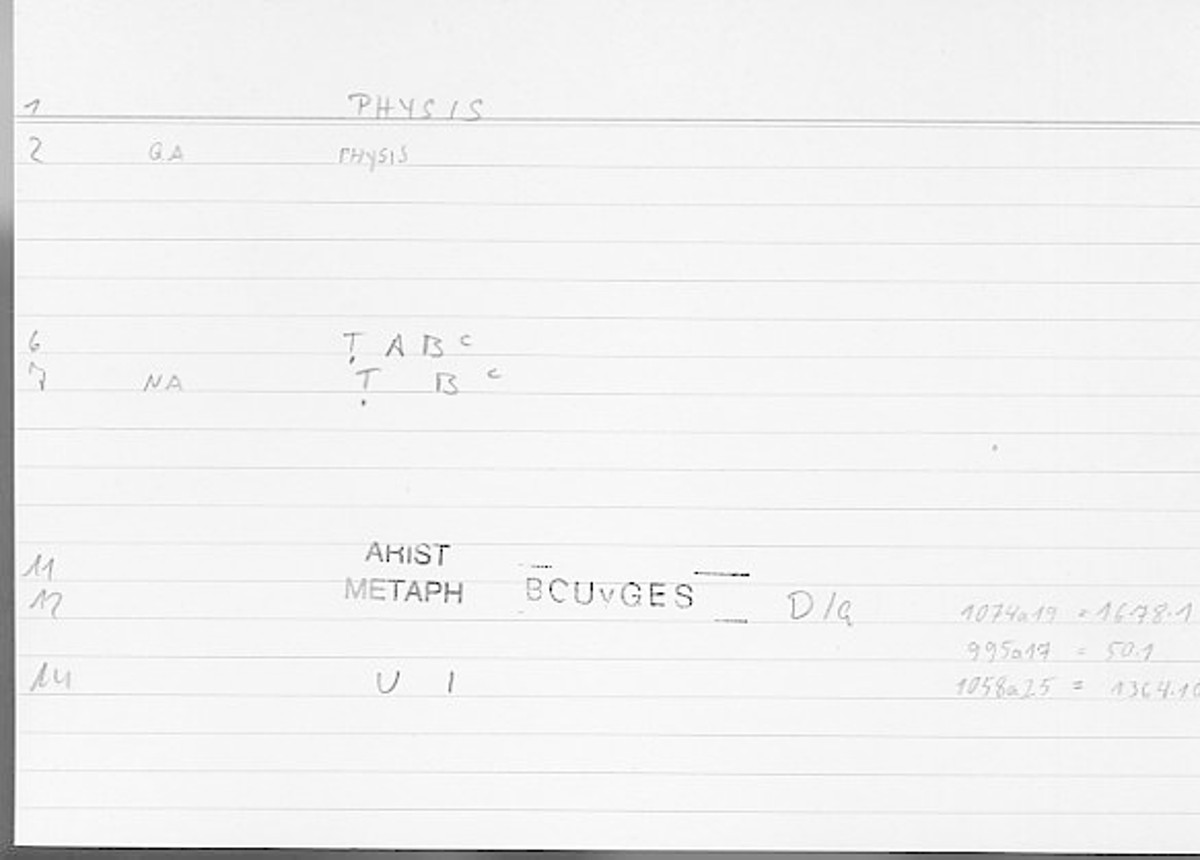 1 PHYSIS
2 GA PHYSIS
6 Ṭ A B c
7 NA Ṭ B c
11 ARIST
12 METAPH BCUvGES D/a 1074a19 = 1678.1
995a17 = 50.1
14 U I 1058a25 = 1364.10